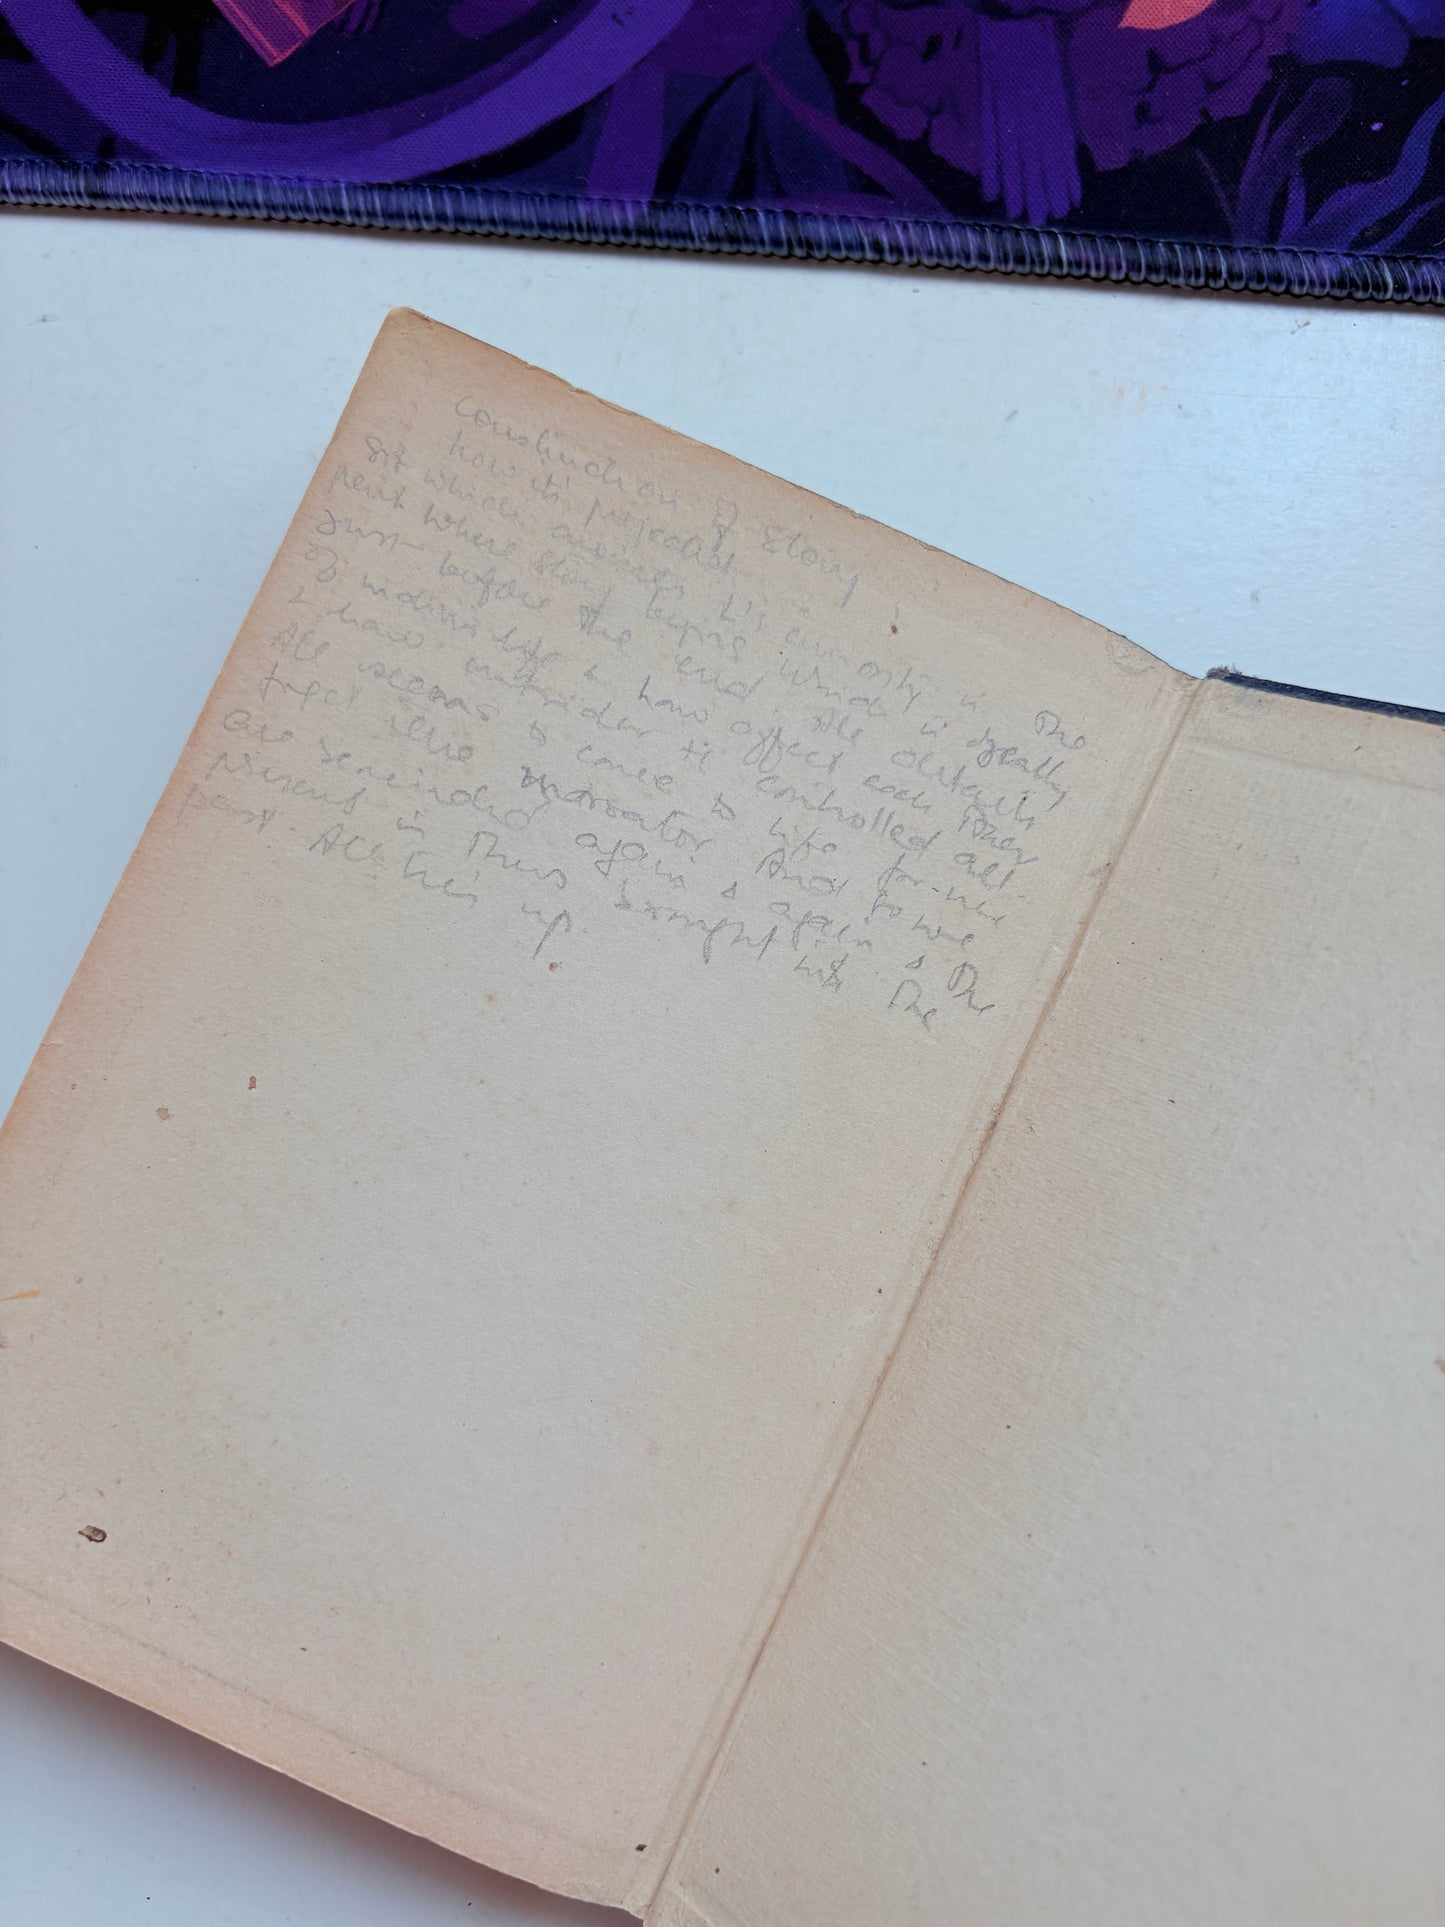 Construction of story
how its projected
Sit which arouses his curiosity is the
point where story begins which is greatly
Just before the end. All details
of individ life & how affect each other
& how outsider is controlled all
All seems to come to life for the
narrator And to we
are reminded again & again & the
present is thus brought into the
past. All ties up.